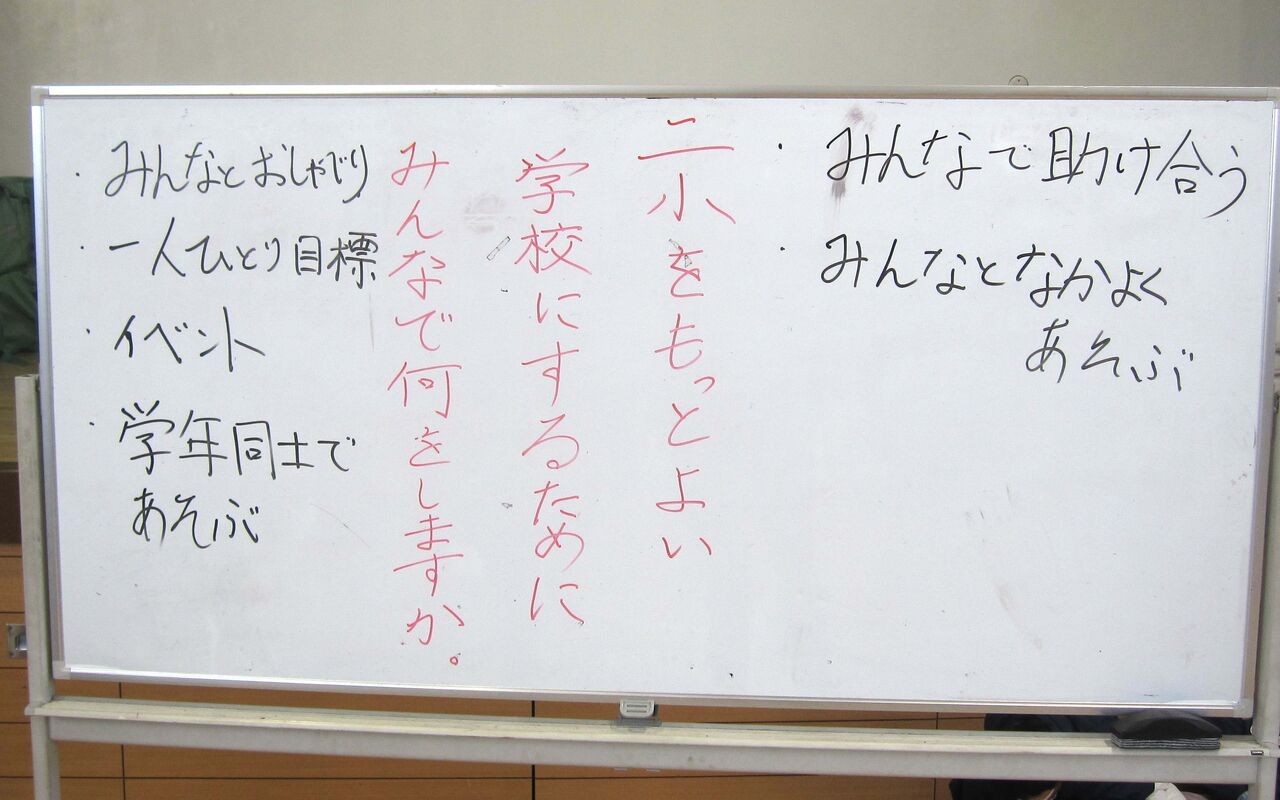 ・みんなで助け合う
・みんなとなかよく
あそぶ
二小をもっとよい
学校にするために
みんなで何をしますか。
・みんなとおしゃべり
・一人ひとり目標
・イベント
・学年同士で
あそぶ